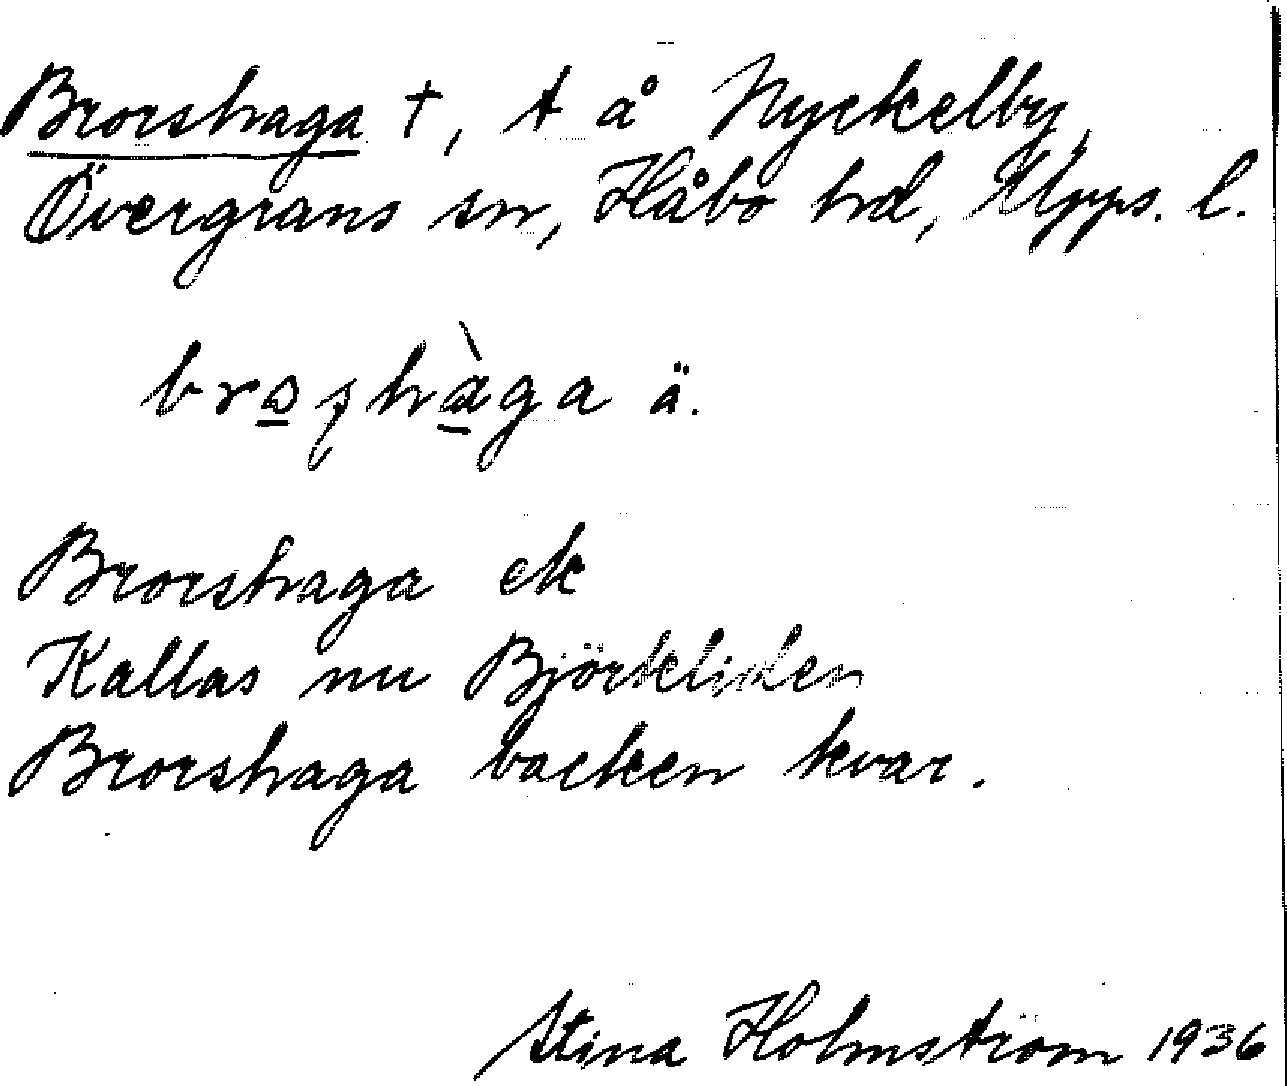 Brorshaga †, t å Nyckelby,
Övergrans sn, Håbo hd, Upps. l.
ä.
Brorshaga ek
Kallas nu Björkeliden
Brorshaga backen kvar.
Stina Holmström 1936